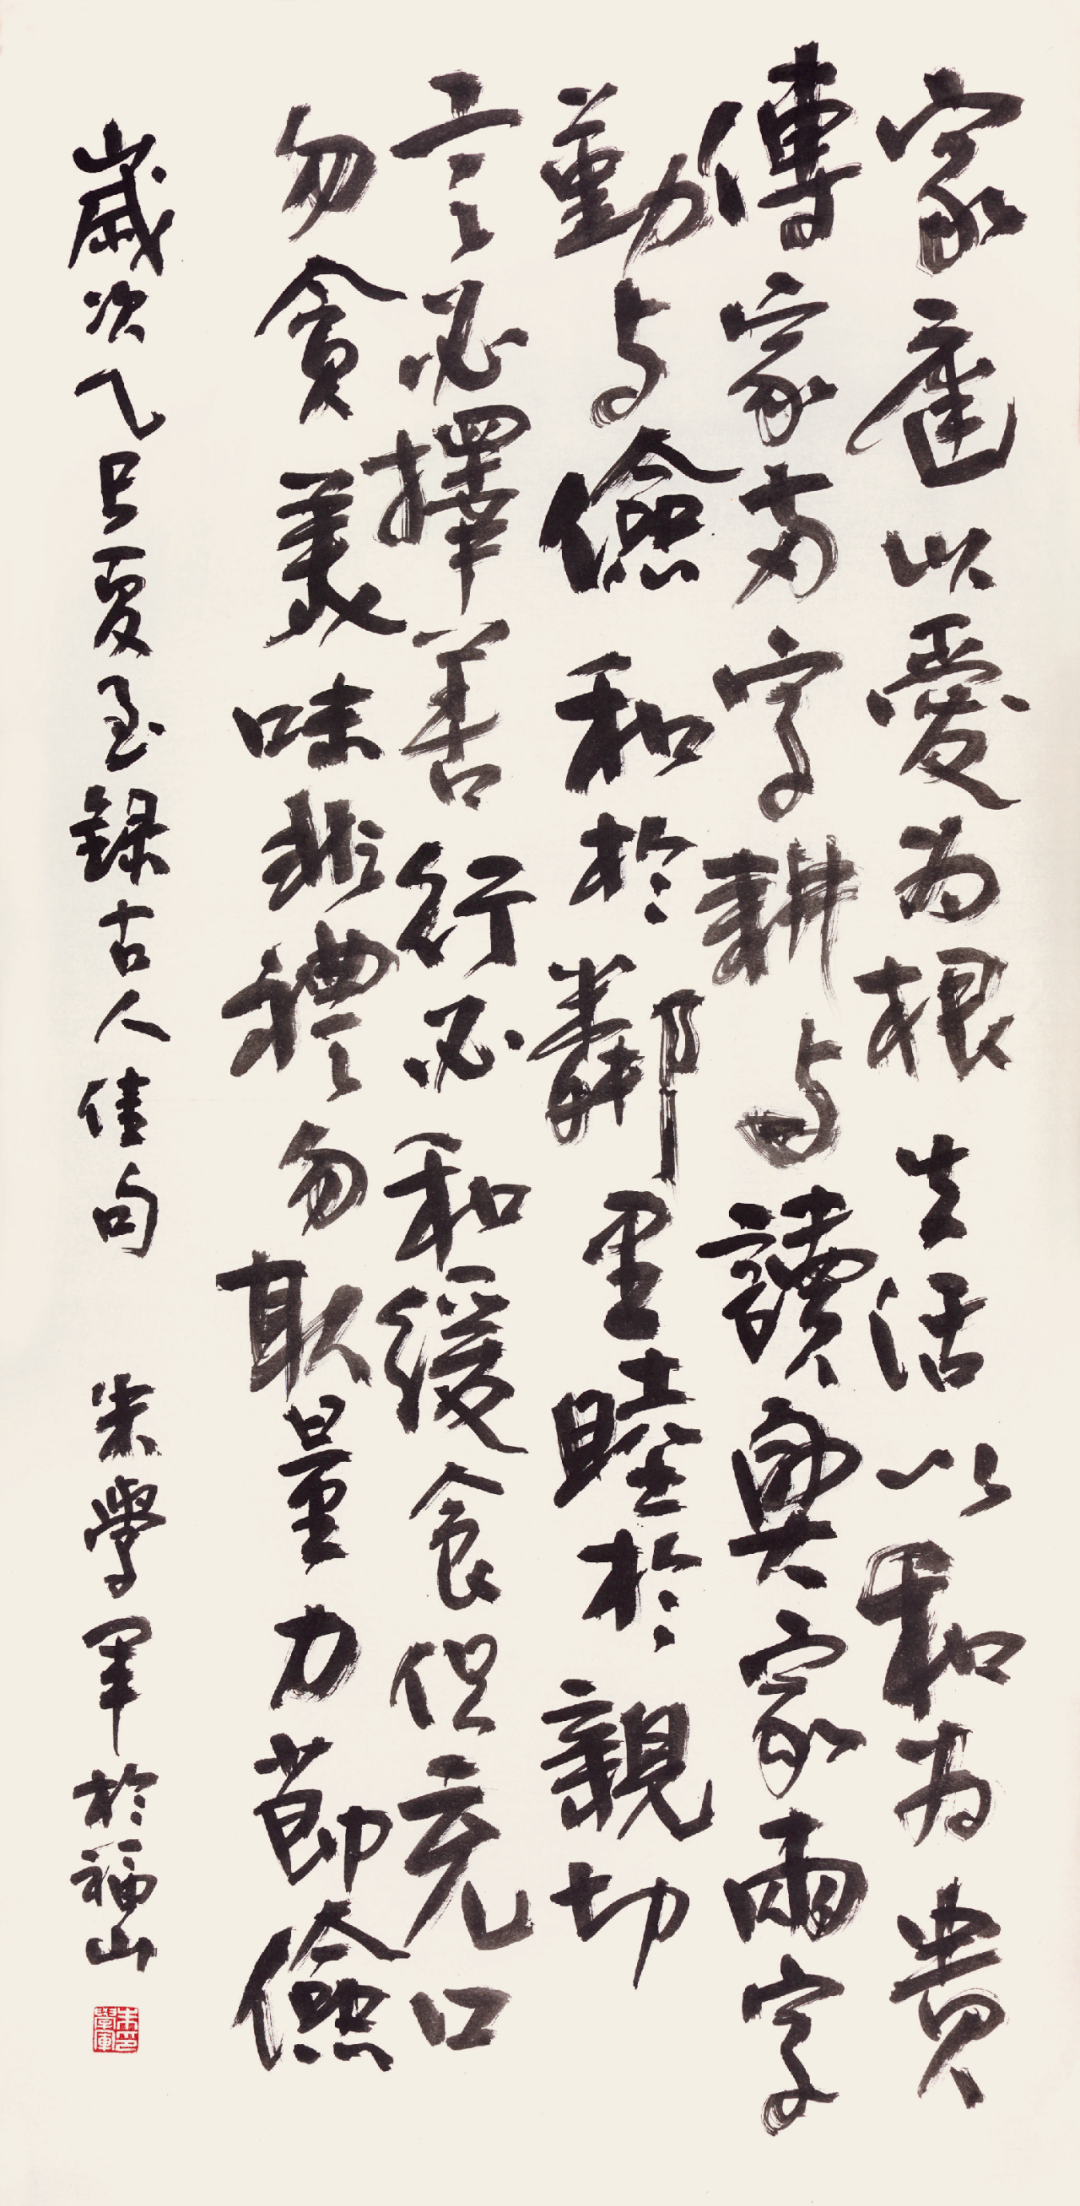 家庭以愛为根生活以和为貴
傳家两字耕与讀興家兩字
勤与儉和於鄰里睦於親切
言必擇善行必和緩食但充口
勿貪美味非禮勿取量力節儉
歲次乙巳夏至録古人佳句 朱學軍於福山
朱印學軍